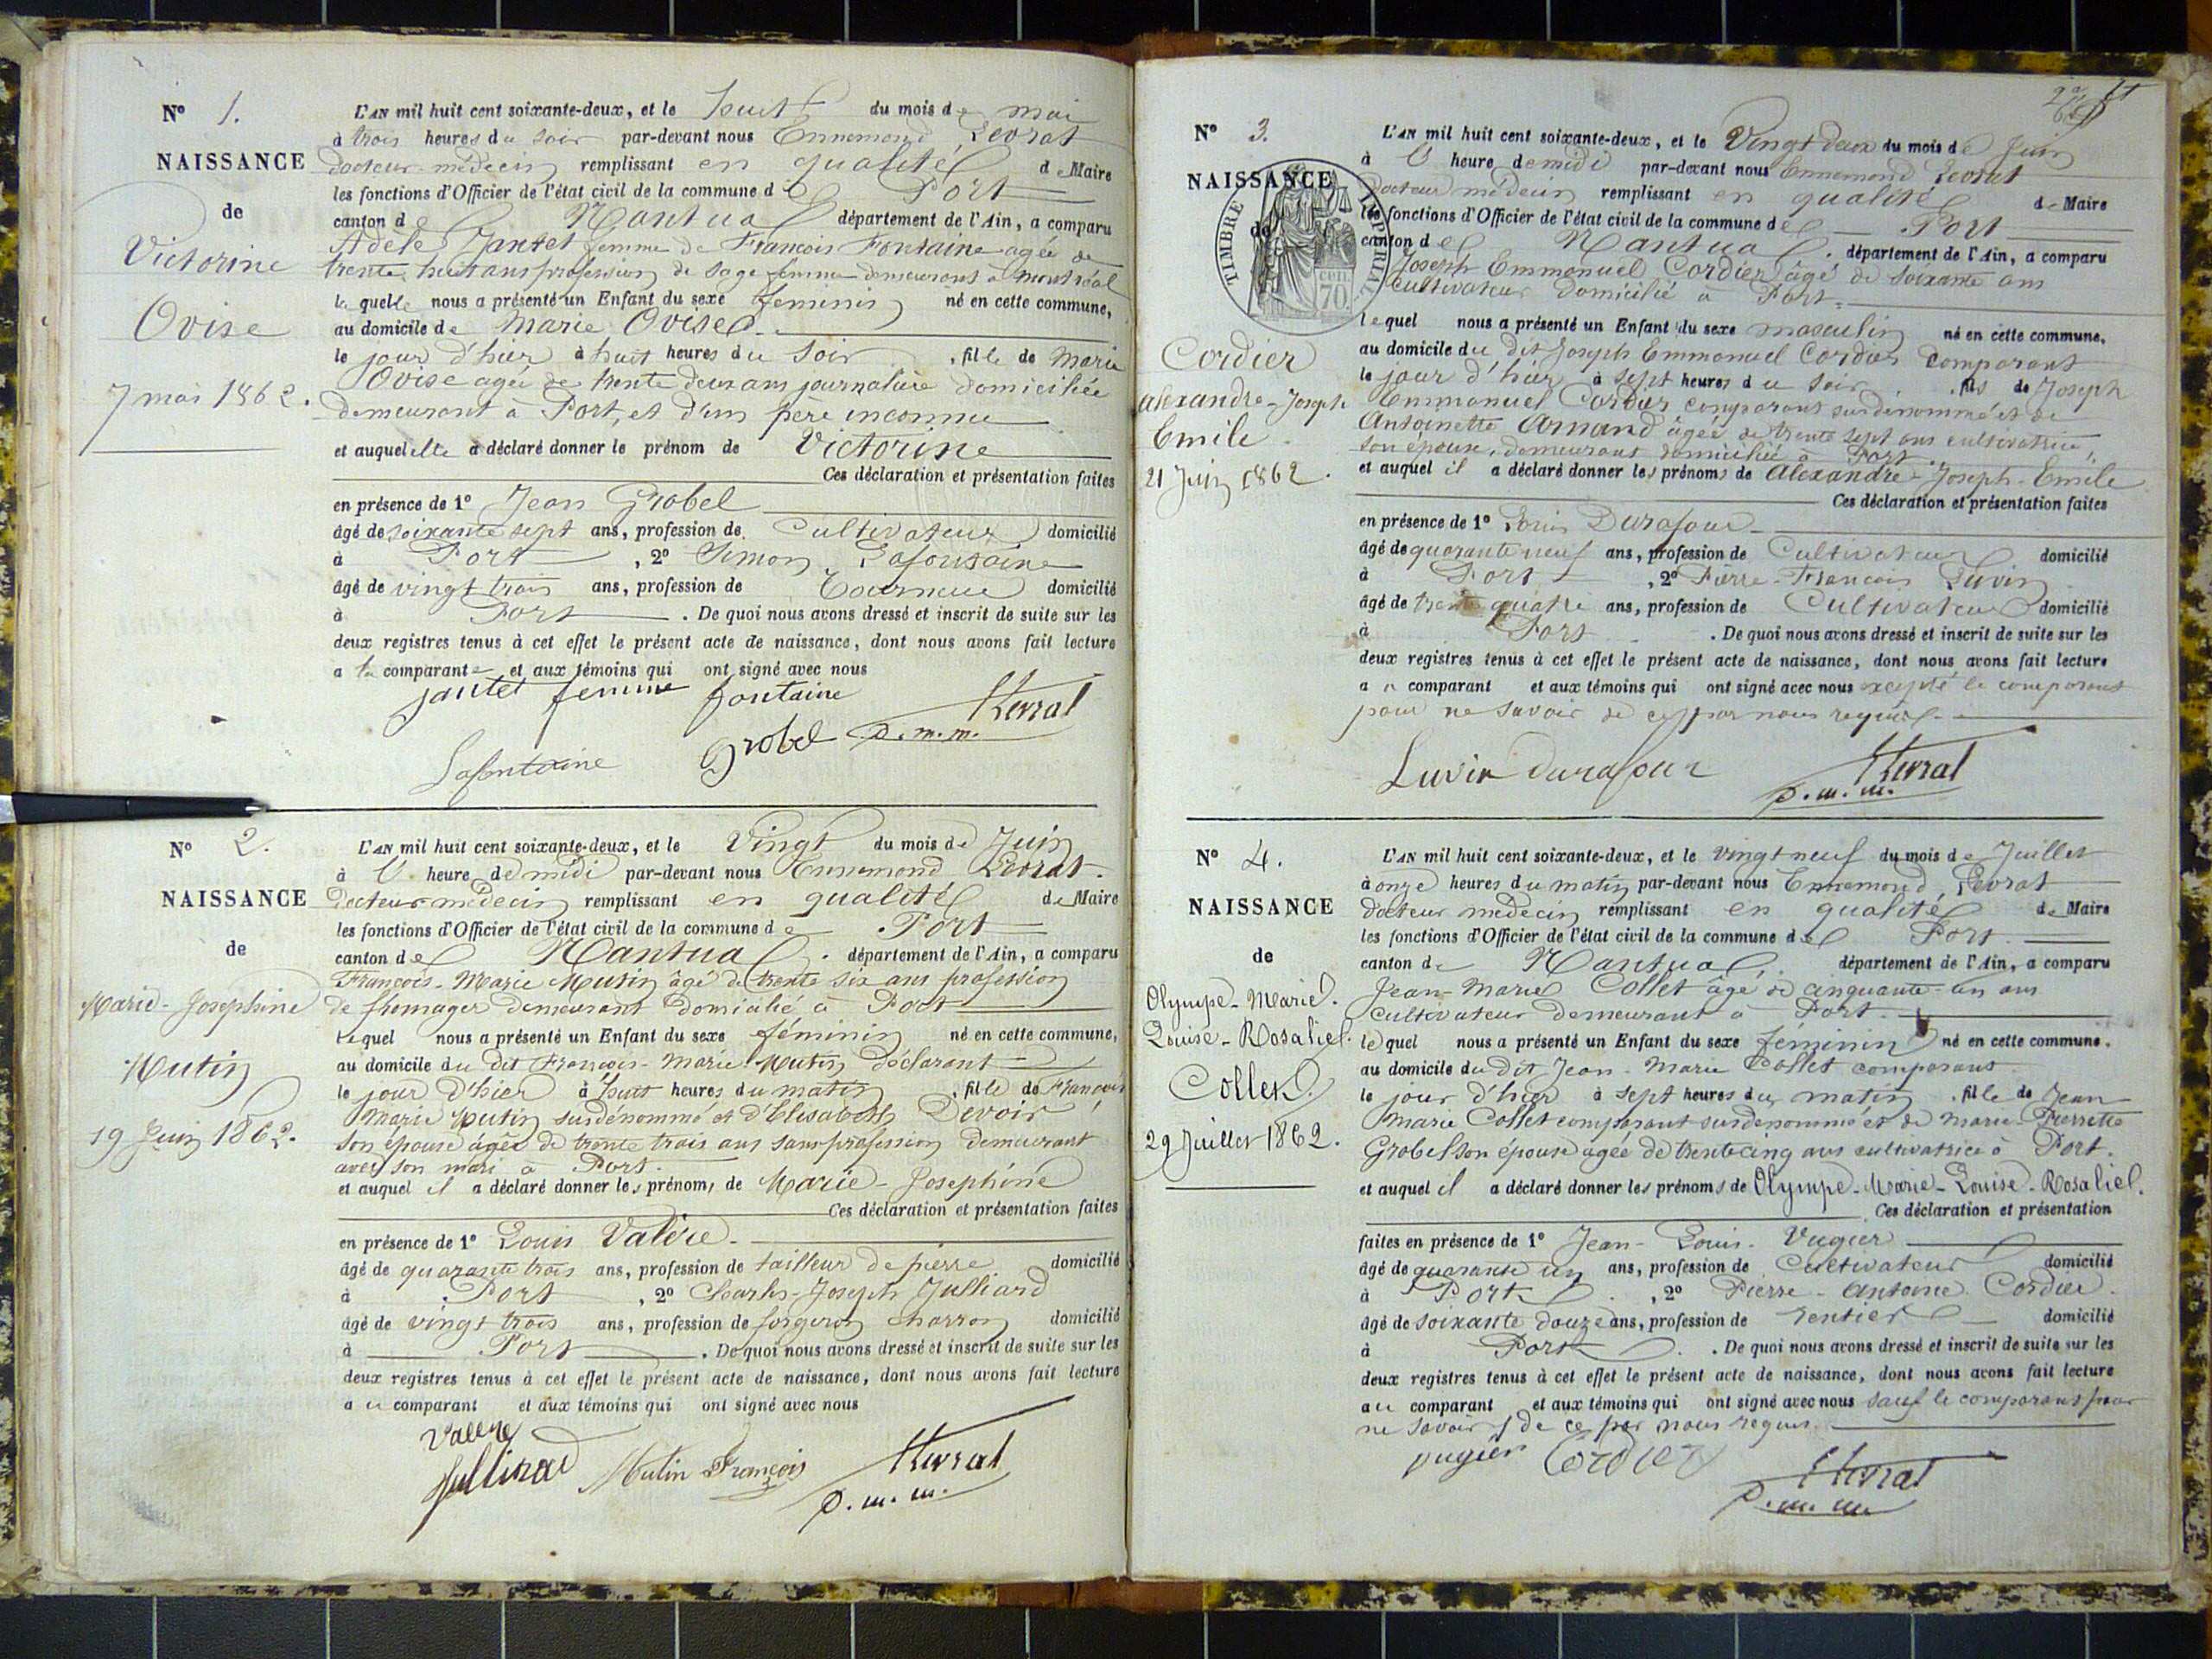 N° 1.
NAISSANCE
de
Victorine
Ovise
7 mai 1862.
L'AN mil huit cent soixante-deux, et le huit du mois de mai
à trois heures du soir par-devant nous Ennemond Levrat
docteur-médecin remplissant en qualité de Maire
les fonctions d'Officier de l'état civil de la commune de Port
canton de Nantua département de l'Ain, a comparu
Adèle Jantet femme de François Fontaine agée de
trente huit ans profession de sage femme demeurant à montréal
laquelle nous a présenté un Enfant du sexe féminin né en cette commune,
au domicile de Marie Ovise
le jour d'hier à huit heures du soir, fille de Marie
Ovise agée de trente deux ans journalière domiciliée
demeurant à Port, et d'un père inconnu
et auquel elle a déclaré donner le prénom de Victorine
Ces déclaration et présentation faites
en présence de 1° Jean Grobel
âgé de soixante sept ans, profession de Cultivateur domicilié
à Port, 2° Simon Lafontaine
âgé de vingt trois ans, profession de Tourneur domicilié
à Port. De quoi nous avons dressé et inscrit de suite sur les
deux registres tenus à cet effet le présent acte de naissance, dont nous avons fait lecture
a la comparante et aux témoins qui ont signé avec nous
jantet femme fontaine
Lafontaine Grobel Levrat
D. m. m.
N° 2.
NAISSANCE
de
Marie-Josephine
Mutin
19 Juin 1862.
L'AN mil huit cent soixante-deux, et le Vingt du mois de Juin
à 1 heure de midi par-devant nous Ennemond Levrat
Docteur médecin remplissant en qualité de Maire
les fonctions d'Officier de l'état civil de la commune de Port
canton de Nantua département de l'Ain, a comparu
François-Marie Mutin âgé de trente six ans profession
de fromager demeurant domicilié à Port
lequel nous a présenté un Enfant du sexe féminin né en cette commune,
au domicile du dit François-Marie Mutin déclarant
le jour d'hier à huit heures du matin, fille de François
Marie Mutin susdénommé et d'Elisabeth Devoir
son épouse âgée de trente trois ans sans profession demeurant
avec son mari à Port.
et auquel il a déclaré donner les prénoms de Marie-Josephine
Ces déclaration et présentation faites
en présence de 1° Louis Valère
âgé de quarante trois ans, profession de tailleur de pierre domicilié
à Port, 2° Charles-Joseph Julliard
âgé de vingt trois ans, profession de forgeron charron domicilié
à Port. De quoi nous avons dressé et inscrit de suite sur les
deux registres tenus à cet effet le présent acte de naissance, dont nous avons fait lecture
au comparant et aux témoins qui ont signé avec nous
Valère
Julliard Mutin François Levrat
D. m. m.
N° 3.
NAISSANCE
de
TIMBRE IMPERIAL
CEN
70.
Cordier
Alexandre-Joseph
Emile
21 Juin 1862.
L'AN mil huit cent soixante-deux, et le Vingt deux du mois de Juin
à 1 heure de midi par-devant nous Ennemond Levrat
Docteur médecin remplissant en qualité de Maire
les fonctions d'Officier de l'état civil de la commune de Port
canton de Nantua département de l'Ain, a comparu
Joseph Emmanuel Cordier âgé de soixante ans
cultivateur domicilié à Port
lequel nous a présenté un Enfant du sexe masculin né en cette commune,
au domicile du dit Joseph Emmanuel Cordier comparant
le jour d'hier à sept heures du soir, fils de Joseph
Emmanuel Cordier comparant susdénommé et de
Antoinette Armand âgée de trente sept ans cultivatrice,
son épouse, demeurant domiciliée à Port.
et auquel il a déclaré donner les prénoms de Alexandre-Joseph-Emile
Ces déclaration et présentation faites
en présence de 1° Louis Durafour
âgé de quarante neuf ans, profession de Cultivateur domicilié
à Port, 2° Pierre-François Luvin
âgé de trente quatre ans, profession de Cultivateur domicilié
à Port. De quoi nous avons dressé et inscrit de suite sur les
deux registres tenus à cet effet le présent acte de naissance, dont nous avons fait lecture
au comparant et aux témoins qui ont signé avec nous excepté le comparant
pour ne savoir de ce par nous requis.
Luvin durafour Levrat
D. m. m.
N° 4.
NAISSANCE
de
Olympe-Marie.
Louise-Rosalie.
Collet
29 Juillet 1862.
L'AN mil huit cent soixante-deux, et le vingt neuf du mois de Juillet
à onze heures du matin par-devant nous Ennemond Levrat
docteur médecin remplissant en qualité de Maire
les fonctions d'Officier de l'état civil de la commune de Port
canton de Nantua département de l'Ain, a comparu
Jean-Marie Collet âgé de cinquante-un ans
cultivateur demeurant à Port.
lequel nous a présenté un Enfant du sexe féminin né en cette commune,
au domicile du dit Jean-Marie Collet comparant
le jour d'hier à sept heures du matin, fille de Jean
Marie Collet comparant susdénommé et de Marie-Pierrette
Grobel son épouse agée de trente cinq ans cultivatrice à Port.
et auquel il a déclaré donner les prénoms de Olympe-Marie-Louise-Rosalie.
Ces déclaration et présentation
faites en présence de 1° Jean-Louis Vugier
âgé de quarante un ans, profession de Cultivateur domicilié
à Port, 2° Pierre-Antoine Cordier
âgé de soixante douze ans, profession de rentier domicilié
à Port. De quoi nous avons dressé et inscrit de suite sur les
deux registres tenus à cet effet le présent acte de naissance, dont nous avons fait lecture
au comparant et aux témoins qui ont signé avec nous sauf le comparant pour
ne savoir de ce par nous requis.
pugier Cordier
Levrat
D. m. m.